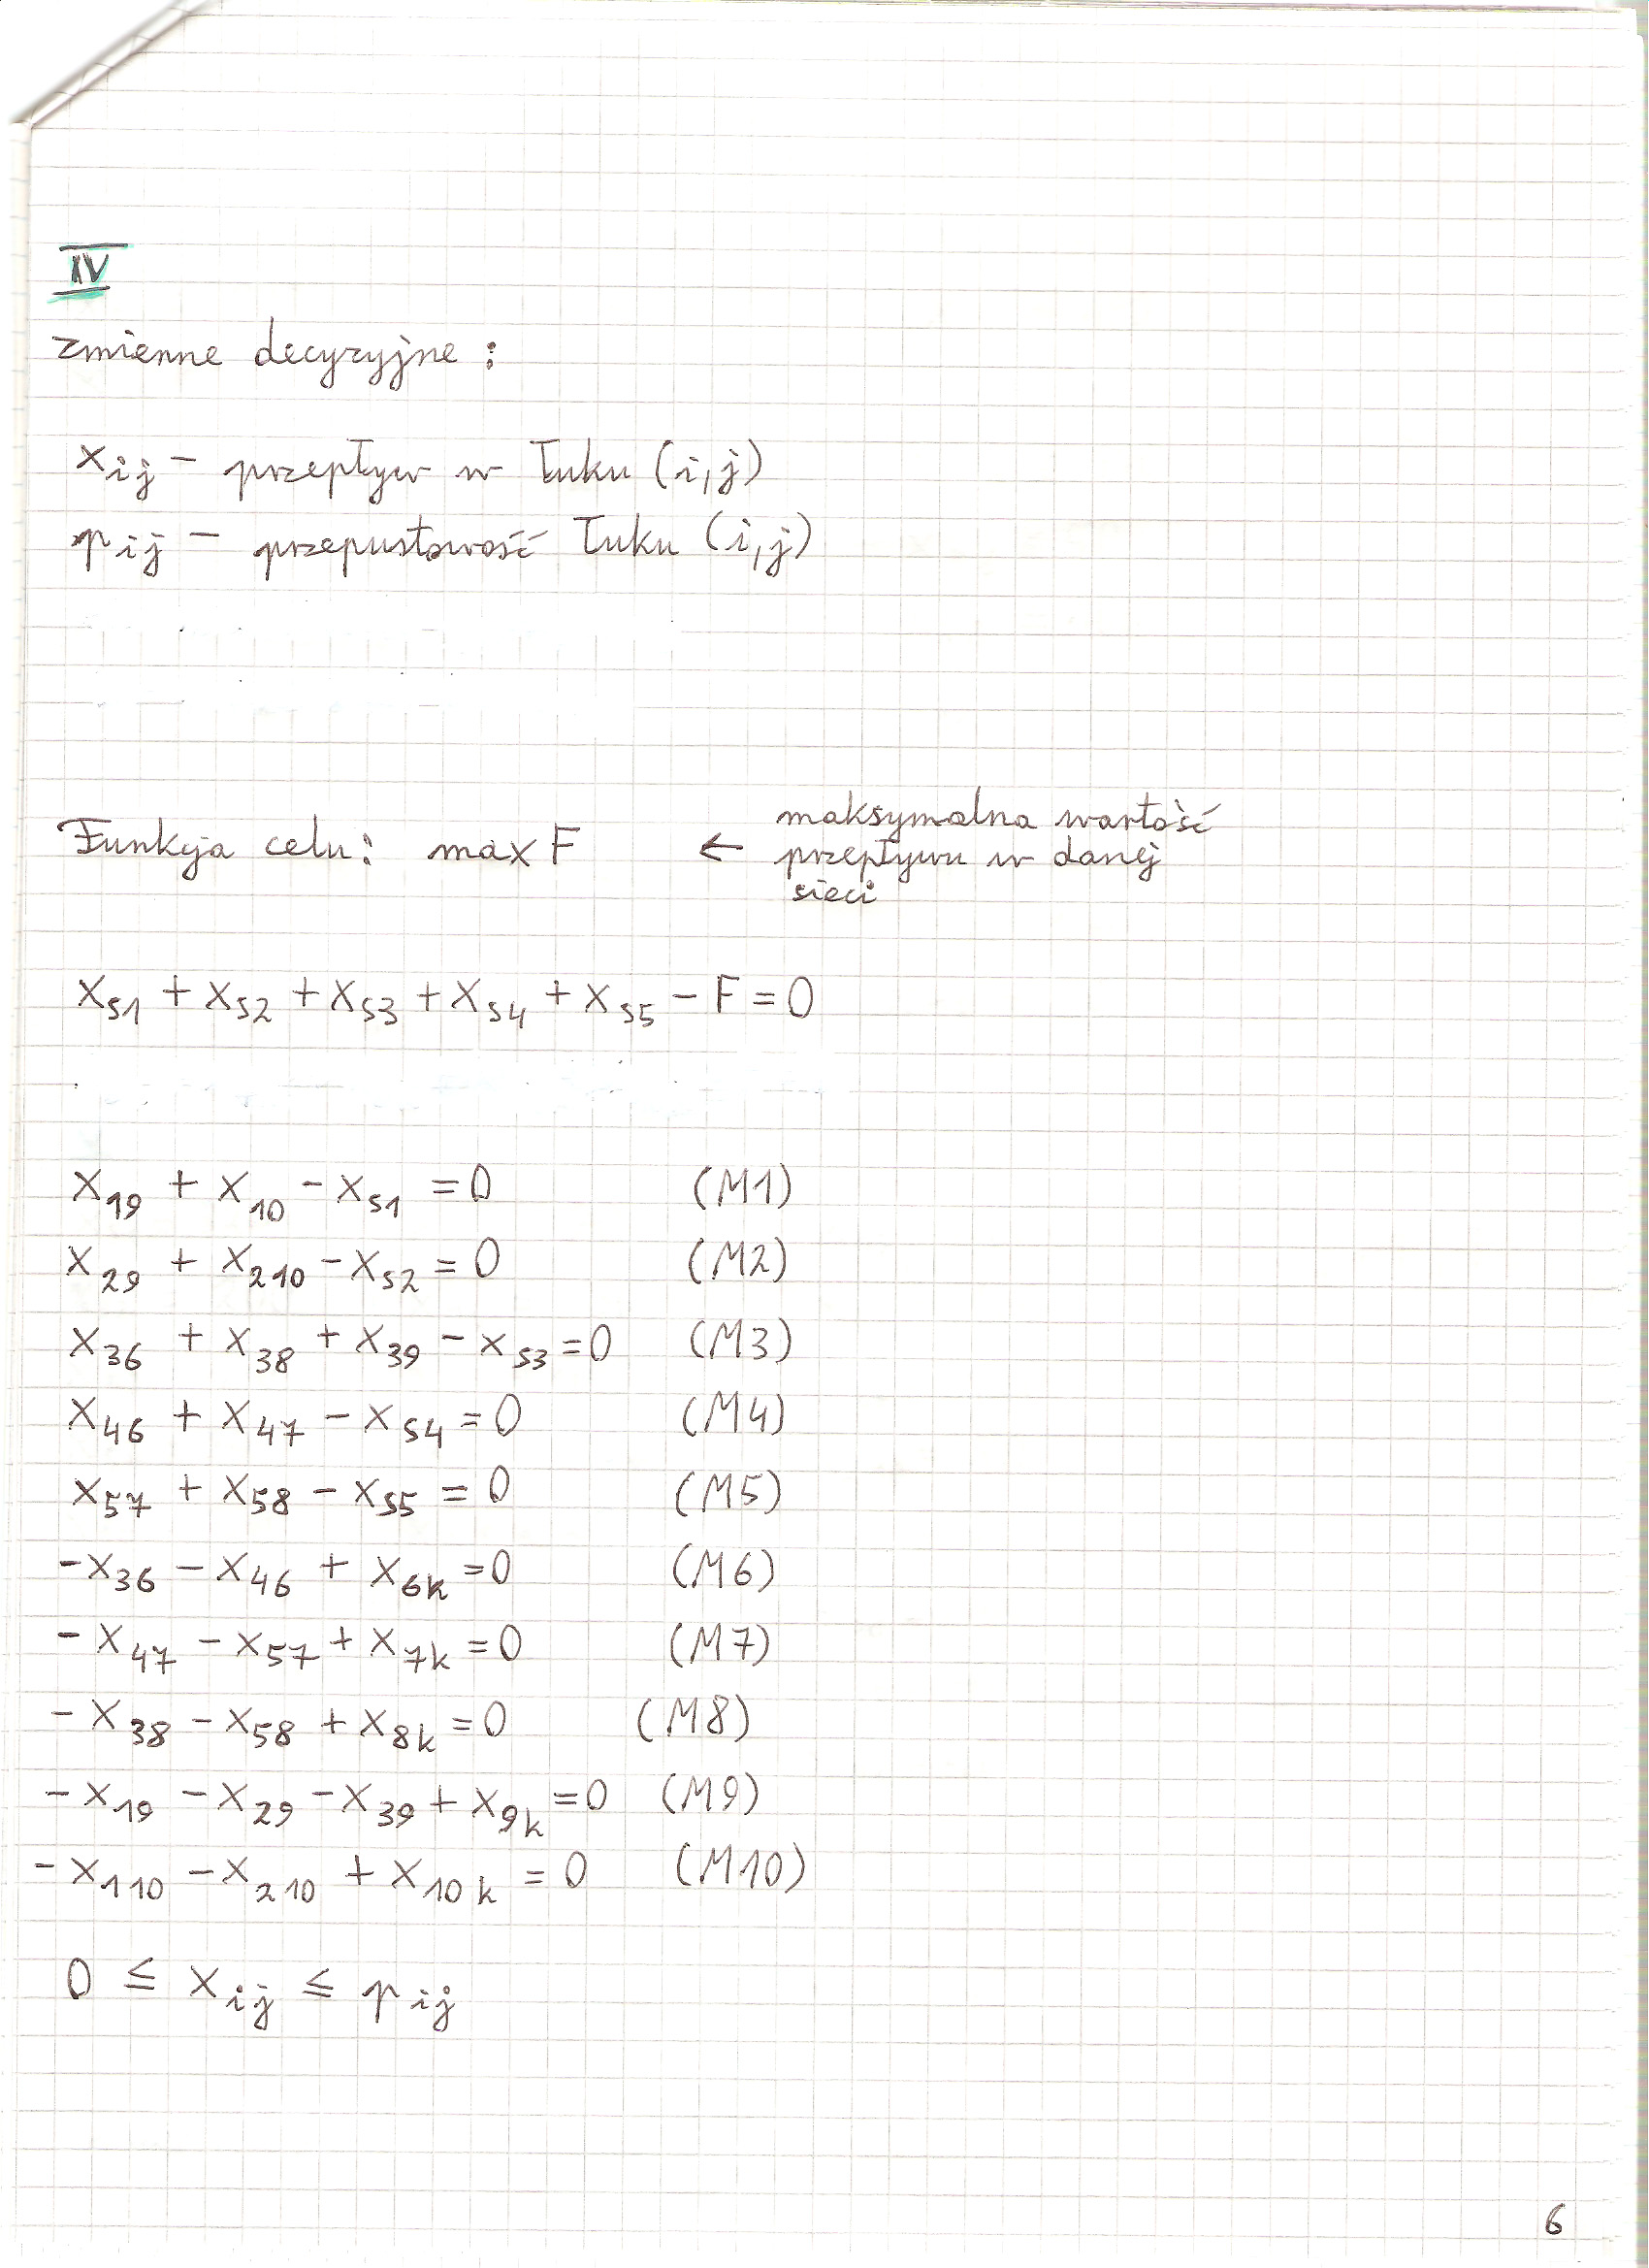 IV
zmienne decyzyjne :
x_ij – przepływ w łuku (i,j)
p_ij – przepustowość łuku (i,j)
Funkcja celu: max F ← maksymalna wartość
przepływu w danej
sieci
x_s1 + x_s2 + x_s3 + x_s4 + x_s5 – F = 0
x_19 + x_10 – x_s1 = 0 (M1)
x_29 + x_210 – x_s2 = 0 (M2)
x_36 + x_38 + x_39 – x_s3 = 0 (M3)
x_46 + x_47 – x_s4 = 0 (M4)
x_57 + x_58 – x_s5 = 0 (M5)
–x_36 – x_46 + x_6k = 0 (M6)
–x_47 – x_57 + x_7k = 0 (M7)
–x_38 – x_58 + x_8k = 0 (M8)
–x_19 – x_29 – x_39 + x_9k = 0 (M9)
–x_110 – x_210 + x_10k = 0 (M10)
0 ≤ x_ij ≤ p_ij
6